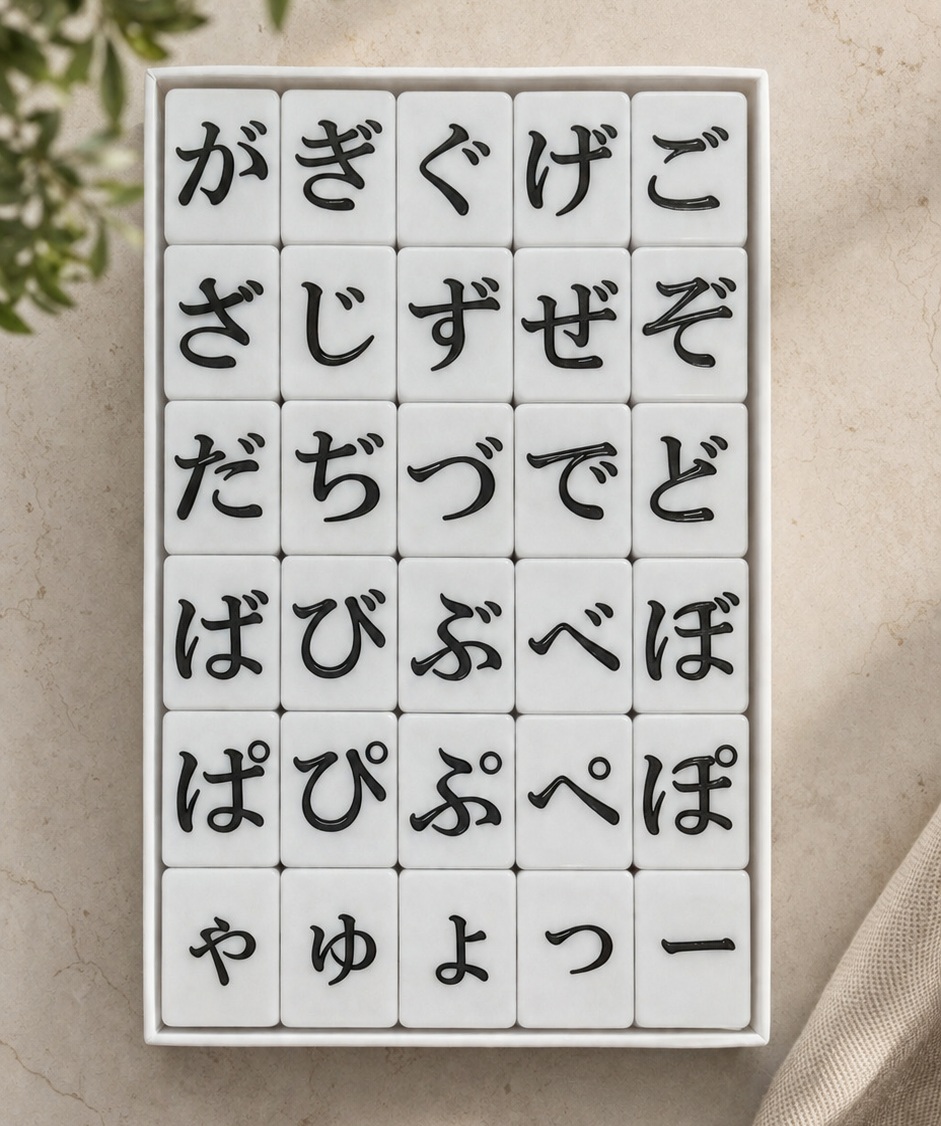 がぎぐげご
ざじずぜぞ
だぢづでど
ばびぶべぼ
ぱぴぷぺぽ
ゃゅょっー